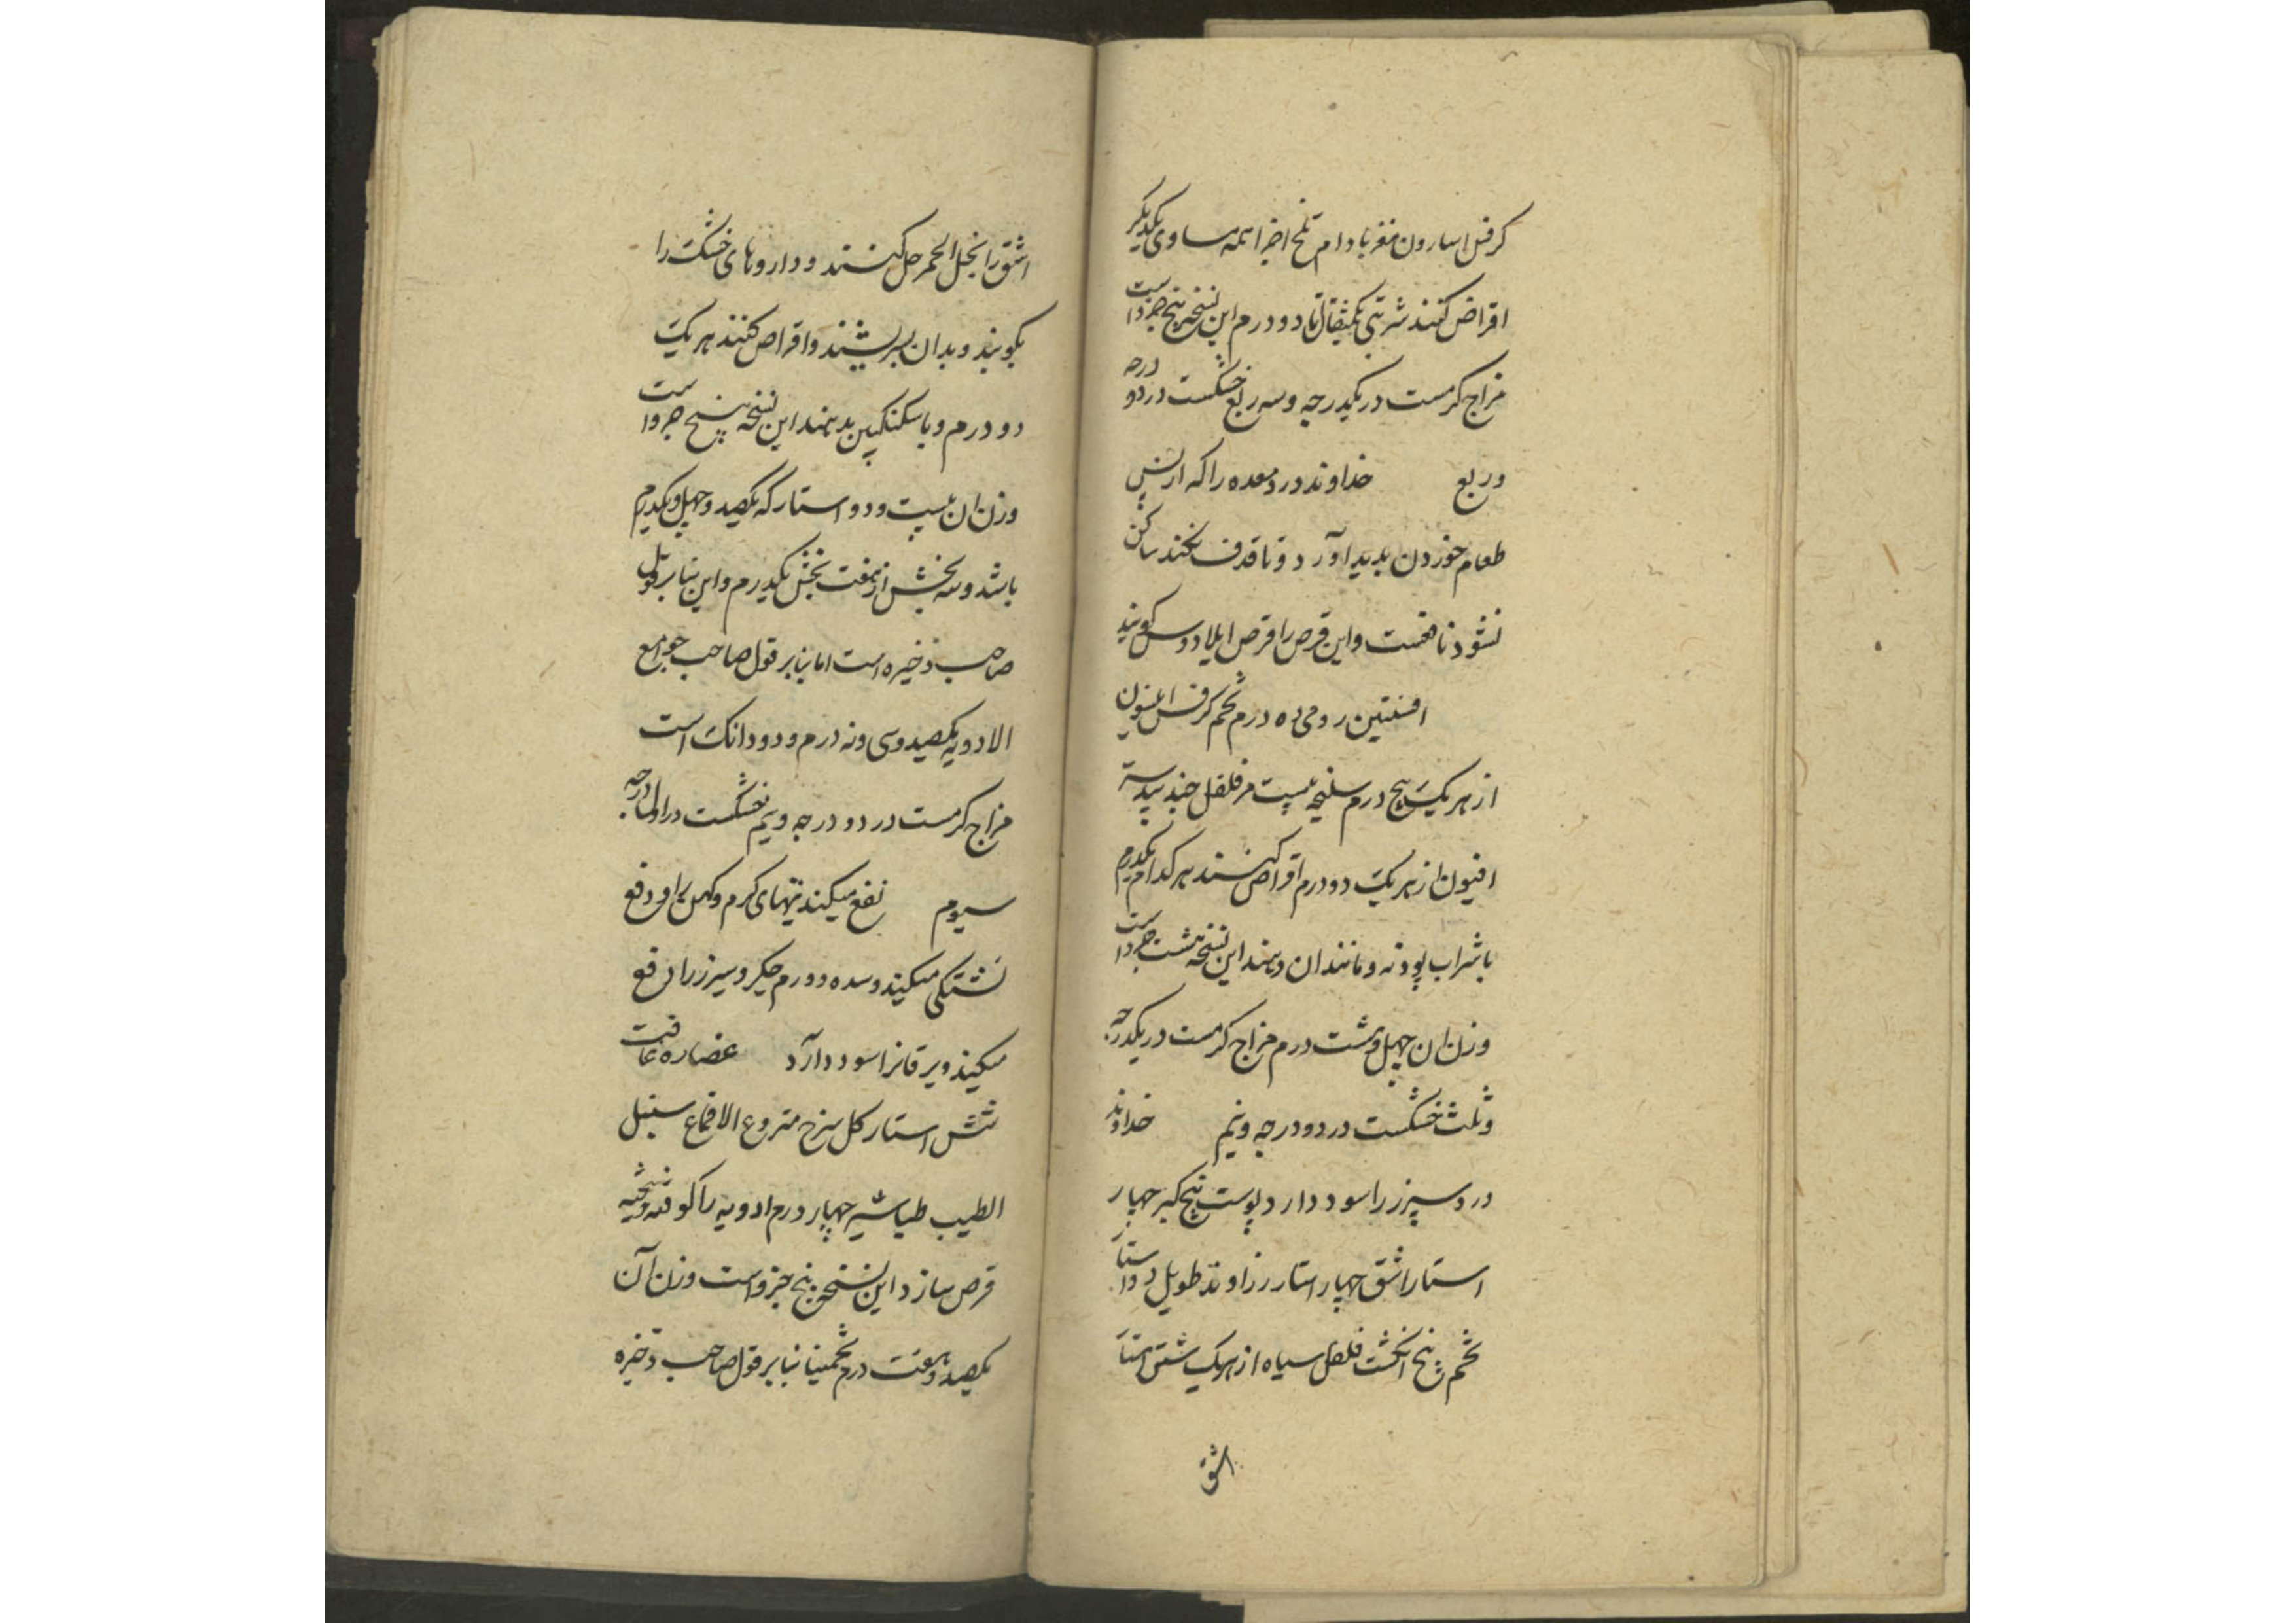 کرفس اسارون مغز بادام تلخ اجزا همه مساوی یکدیگر
اقراص کنند شربتی یکمثقال تا دو درم این نسخه پنج جزو است
مزاج کرمست در یکدرجه و سه ربع خشکست در دو درجه
و ربع خداوند درد معده را که از پس
طعام خوردن پدید آورد و تا قذف نکند ساکن
نشود نافعست و این قرص را قرص ایلادوس کویند
افسنتین رومی ده درم تخم کرفس انیسون
از هر یک پنج درم سلیخه بیست مر فلفل جندبیدستر
افیون از هر یک دو درم اقراص کنند هر کدام یکدرم
با شراب پودنه و مانند ان دهند این نسخه هشت جزو است
وزن ان چهل و هشت درم مزاج کرمست در یکدرجه
و ثلث خشکست در دو درجه و نیم خداوند
درد سپرز را سود دارد پوست بیخ کبر چهار
استار اشق چهار استار زراوند طویل دو استار
تخم پنج انکشت فلفل سیاه از هر یک شش استار
اشق
اشق را بخل الخمر حل کنند و داروهای خشک را
بکوبند و بدان بسریشند و اقراص کنند هر یک
دو درم و با سکنکبین بدهند این نسخه پنج جزو است
وزن ان بیست و دو استار که یکصد و چهل و یکدرم
باشد و سه بخش از هفت بخش یکدرم و این بنا بر قول
صاحب ذخیره است اما بنا بر قول صاحب جوامع
الادویه یکصد و سی و نه درم و دو دانک است
مزاج کرمست در دو درجه و نیم خشکست در اول درجه
سیوم نفع میکند تبهای کرم و کهن را و دفع
تشنکی میکند و سده و ورم جکر و سپرز را دفع
میکند و یرقانرا سود دارد عصاره غافت
شش استار کل سرخ منزوع الاقماع سنبل
الطیب طباشیر چهار درم ادویه را کوفته و بیخته
قرص سازد این نسخه پنج جزو است وزن آن
یکصد و هفت درم تخمینا بنا بر قول صاحب ذخیره